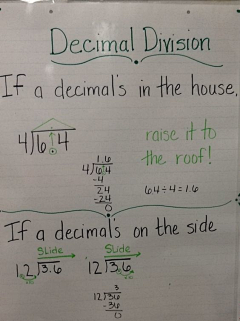 Decimal Division
If a decimal's in the house,
4)6.4
raise it to
the roof!
1.6
4)6.4
-4
24
-24
0
6.4÷4=1.6
If a decimal's on the side
Slide
Slide
1.2)3.6
12)3.6
3
12)36
-36
0